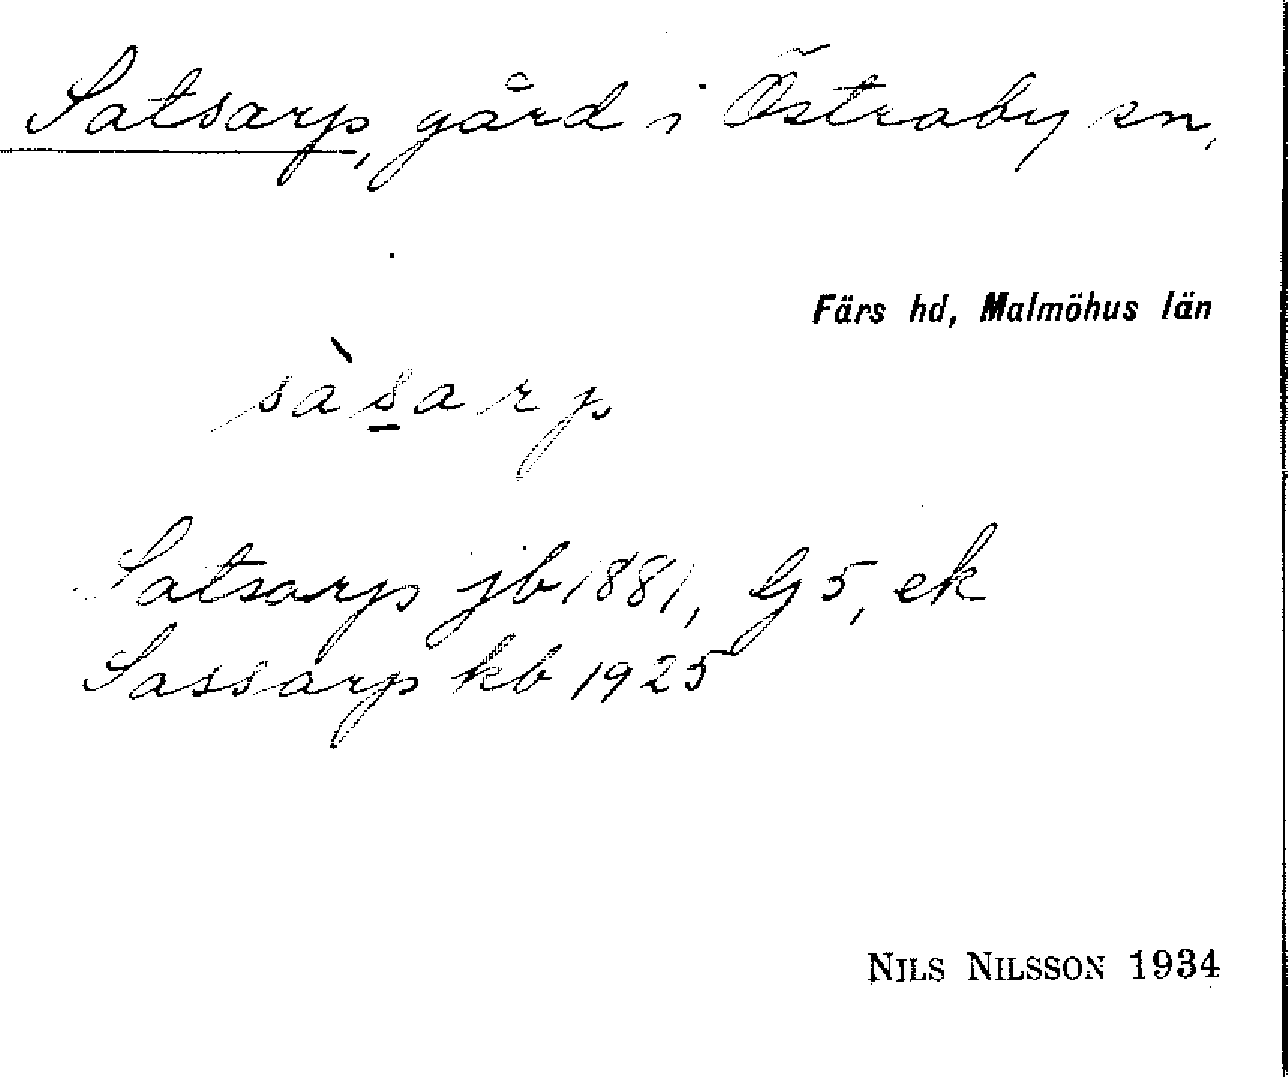 Satsarp, gård i Östraby sn,
Färs hd, Malmöhus län
sàs̲arp
Satsarp jb 1881, Gj 5, ek
Sassarp kb 1925
NILS NILSSON 1934